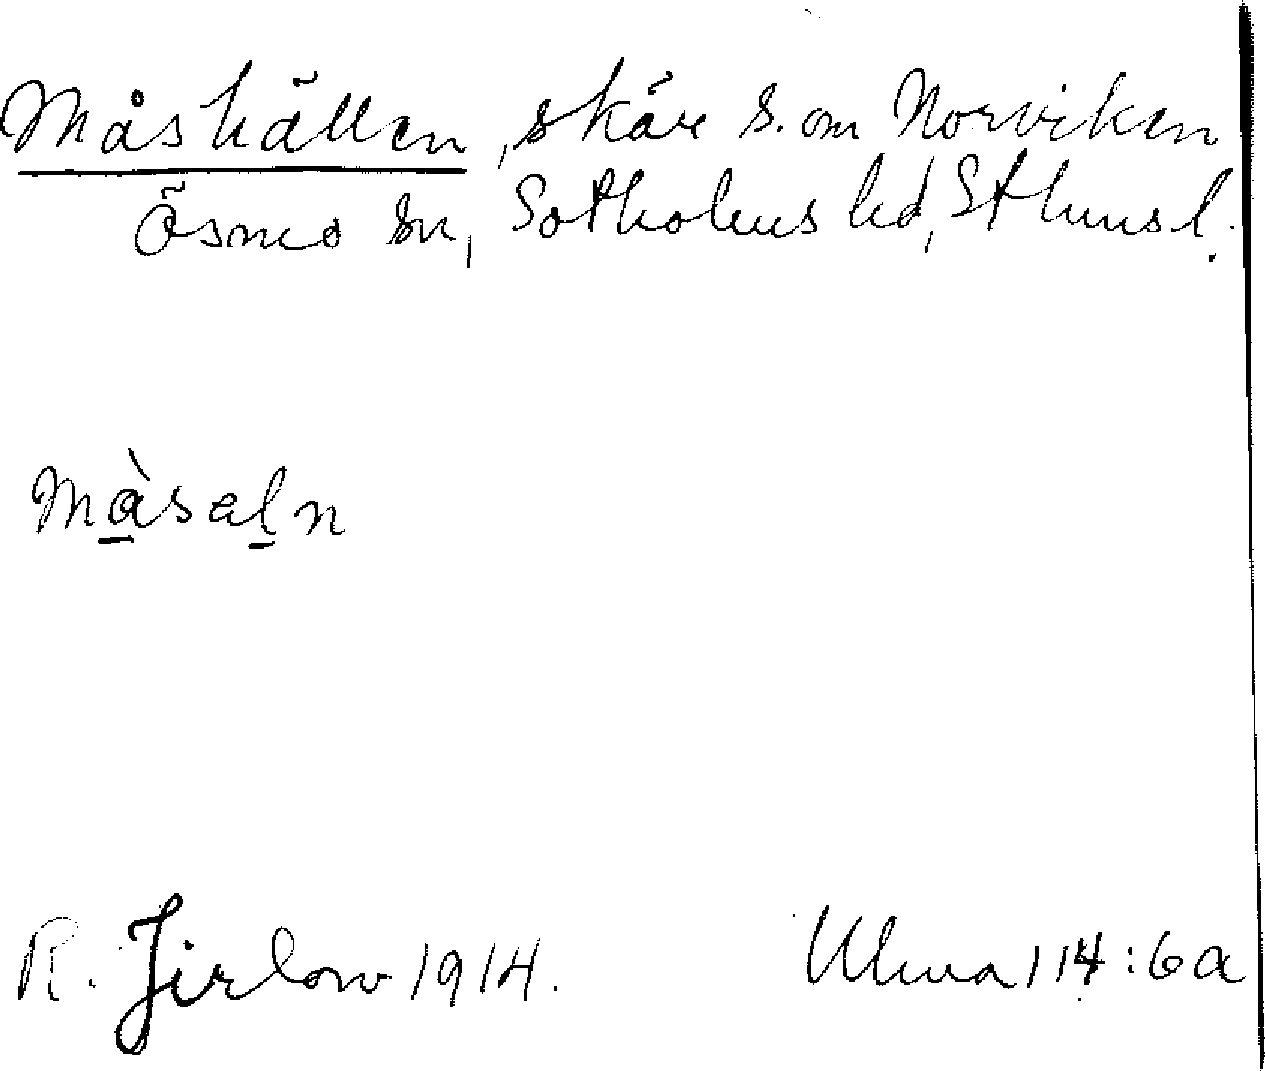 Måshällen, skär s. om Norviken
Ösmo sn, Sotholms hd, Sthms l.
màsaln
R. Jirlow 1914. Ulma 114:6a